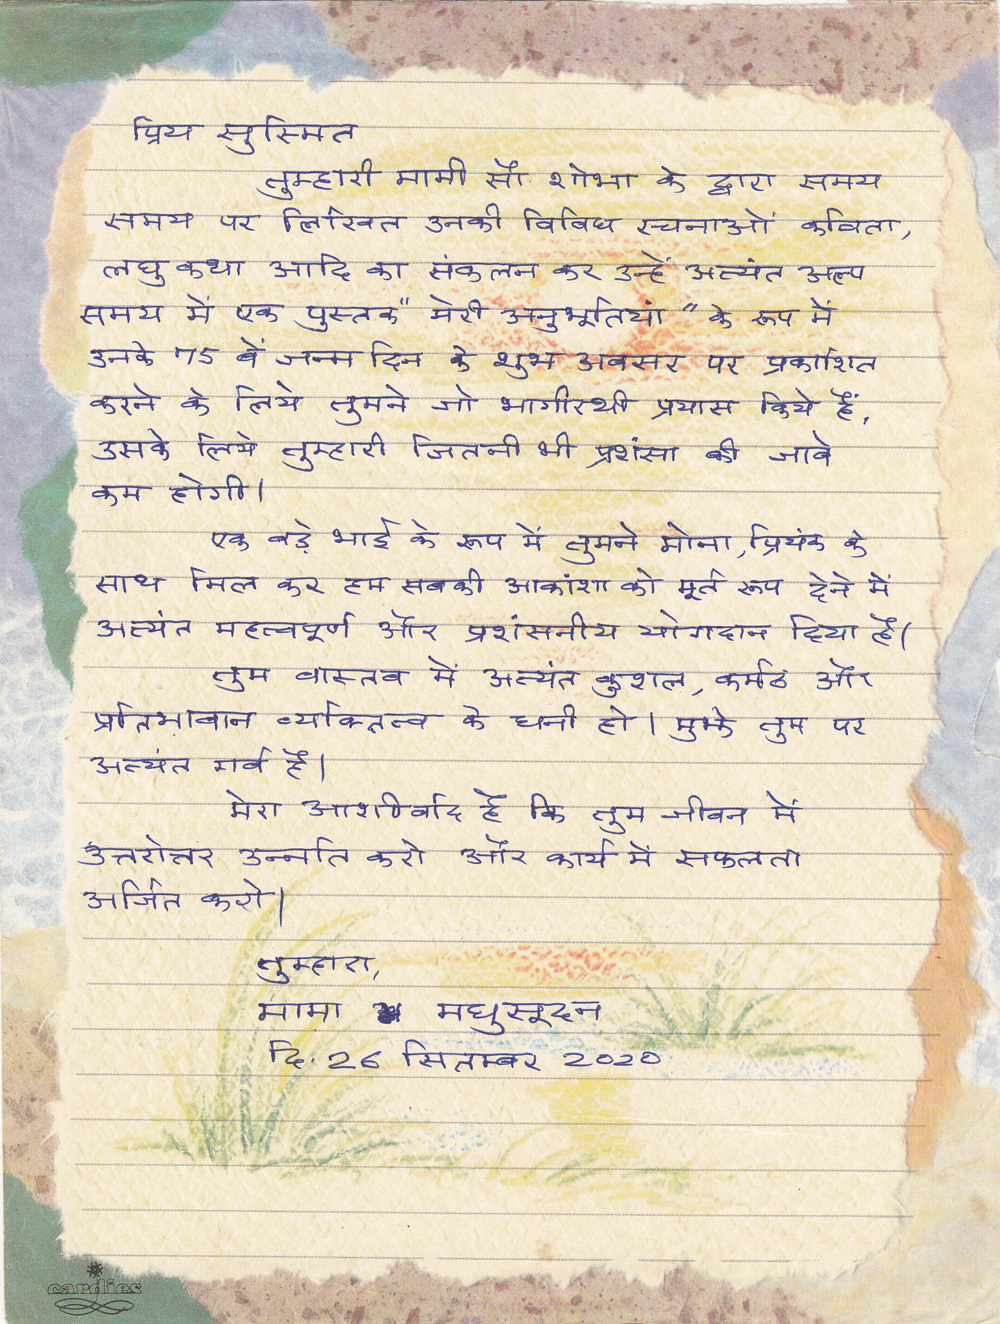 प्रिय सुस्मित
तुम्हारी मामी सौ. शोभा के द्वारा समय
समय पर लिखित उनकी विविध रचनाओं कविता,
लघु कथा आदि का संकुलन कर उन्हें अत्यंत अल्प
समय में एक पुस्तक "मेरी अनुभूतियां" के रूप में
उनके 75 वें जन्म दिन के शुभ अवसर पर प्रकाशित
करने के लिये तुमने जो भागीरथी प्रयास किये हैं,
उसके लिये तुम्हारी जितनी भी प्रशंसा की जावे
कम होगी।
एक बड़े भाई के रूप में तुमने मोना, प्रियंक के
साथ मिल कर हम सबकी आकांशा को मूर्त रूप देने में
अत्यंत महत्वपूर्ण और प्रशंसनीय योगदान दिया है।
तुम वास्तव में अत्यंत कुशल, कर्मठ और
प्रतिभावान व्यक्तित्व के धनी हो। मुझे तुम पर
अत्यंत गर्व है।
मेरा आशीर्वाद है कि तुम जीवन में
उत्तरोत्तर उन्नति करो और कार्य में सफलता
अर्जित करो।
तुम्हारा,
मामा मधुसूदन
दि. 26 सितम्बर 2020
cardies